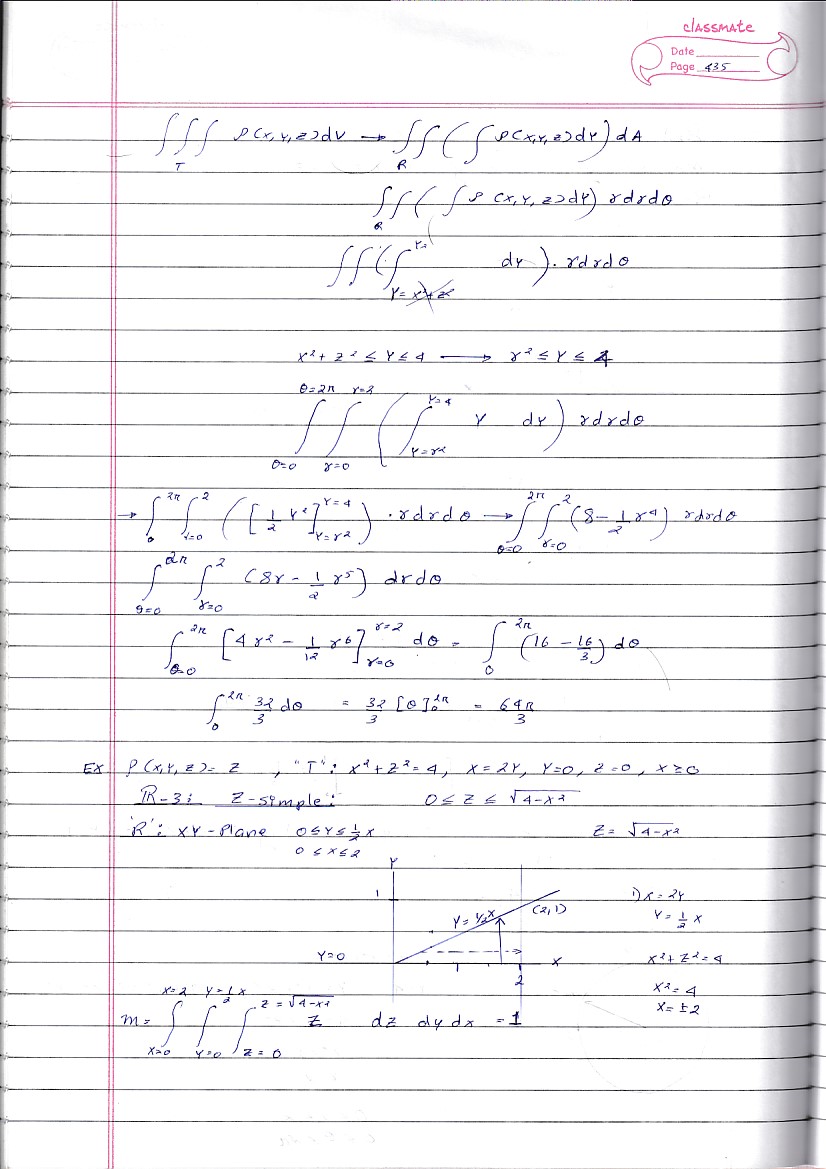 classmate
Date
Page 435
∫∫∫_T ρ(x,y,z)dV → ∫∫_R (∫ ρ(x,y,z)dy) dA
∫∫_R (∫ ρ(x,y,z)dy) rdrdθ
∫∫(∫_{y=x²+z²}^{y=} dy). rdrdθ
x²+z² ≤ y ≤ 4 → r² ≤ y ≤ 4
∫_{θ=0}^{θ=2π} ∫_{r=0}^{r=2} (∫_{y=r²}^{y=4} y dy) rdrdθ
→ ∫_0^{2π} ∫_{r=0}^{2} ([1/2 y²]_{y=r²}^{y=4}) . rdrdθ → ∫_{θ=0}^{2π} ∫_{r=0}^{2} (8 - 1/2 r⁴) rdrdθ
∫_{θ=0}^{2π} ∫_{r=0}^{2} (8r - 1/2 r⁵) drdθ
∫_{θ=0}^{2π} [4r² - 1/12 r⁶]_{r=0}^{r=2} dθ = ∫_0^{2π} (16 - 16/3) dθ
∫_0^{2π} 32/3 dθ = 32/3 [θ]_0^{2π} = 64π/3
EX ρ(x,y,z) = z , "T": x²+z²=4, x=2y, y=0, z=0, x≥0
R-3: z-simple: 0 ≤ z ≤ √(4-x²)
'R': xy-Plane 0≤y≤1/2 x z = √(4-x²)
0 ≤ x ≤ 2
y
1
y = 1/2 x
(2,1)
y=0
1
2
x
1) x = 2y
y = 1/2 x
x²+z²=4
x²=4
x=±2
m = ∫_{x=0}^{x=2} ∫_{y=0}^{y=1/2 x} ∫_{z=0}^{z=√(4-x²)} z dz dy dx = 1